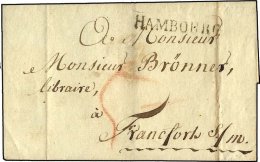 HAMBOURG
A Monsieur
e Monsieur Brönner,
libraire,
à
Francfort s/m.